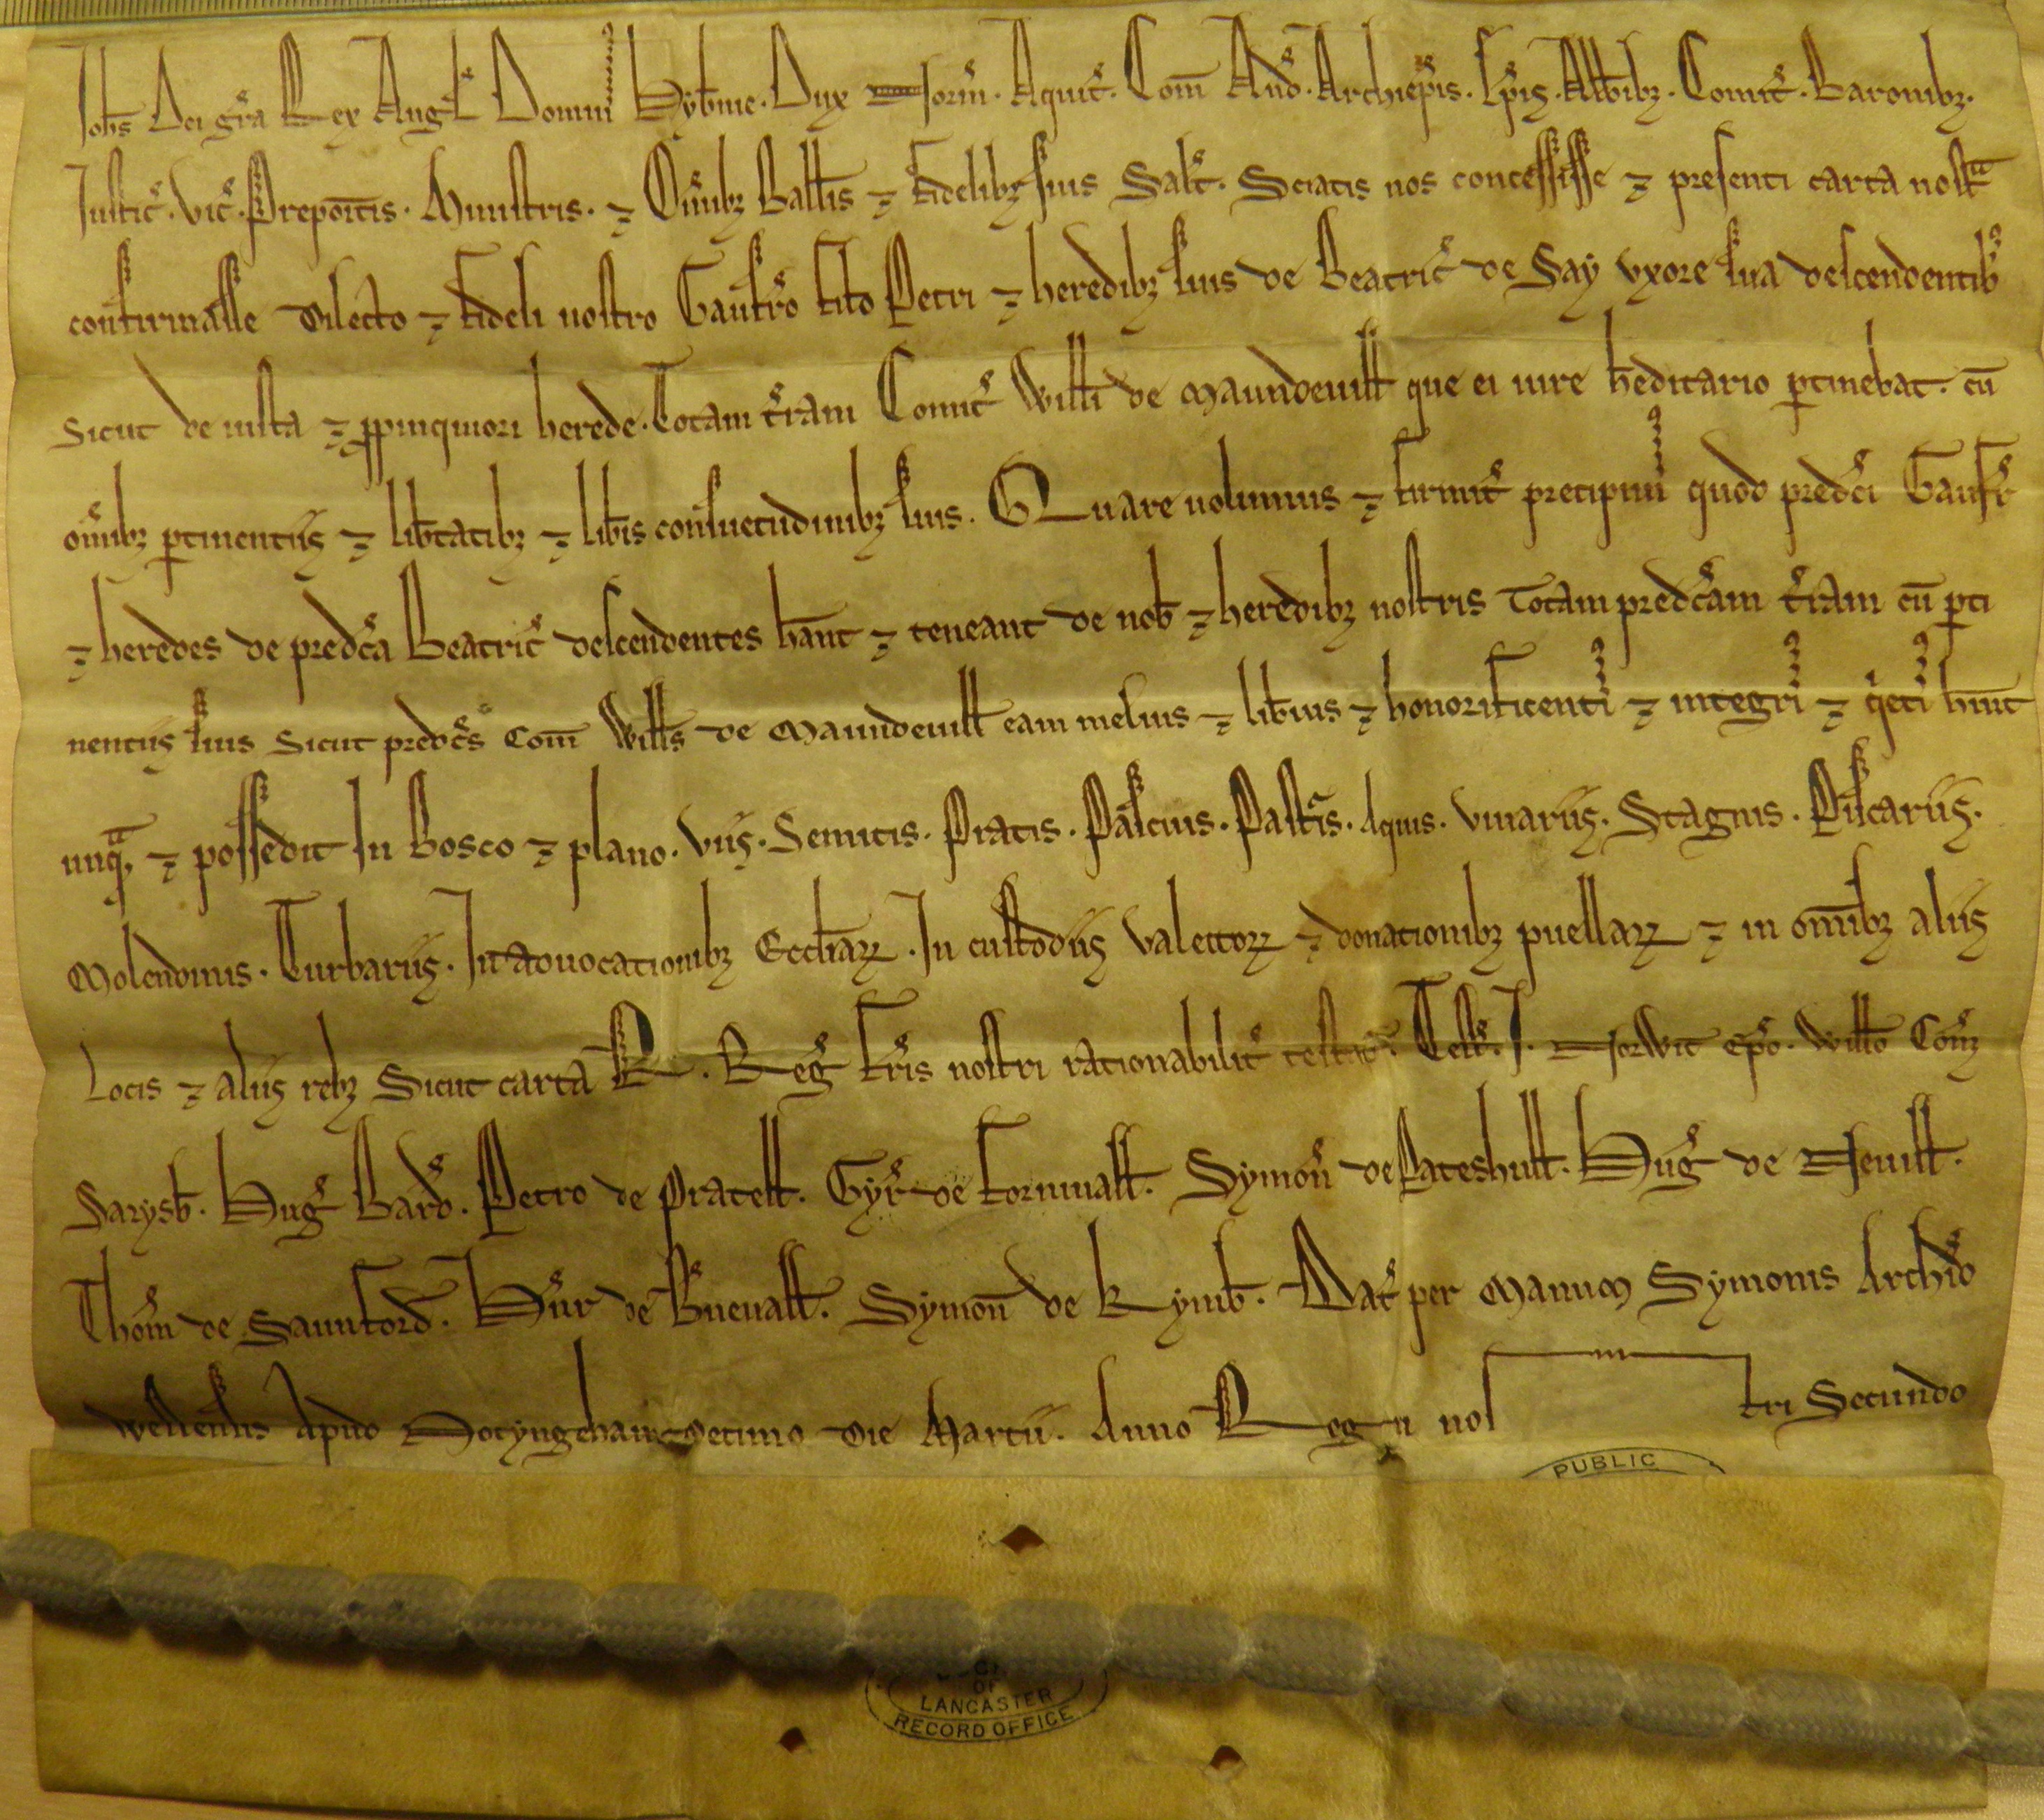 Joh̄s Dei gr̄a Rex Angł Domin' Hyb̄nie. Dux Norm̄. Aquit̄. Com̄ And̄. Archiep̄is. Ep̄is. Abb̄ibꝫ. Comit̄. Baronibꝫ.
Justic̄. Vic̄. Prepoīt̄is. Ministris. ⁊ Om̄ibꝫ Ballis ⁊ fidelibꝫ suis Salt̄. Sciatis nos concessisse ⁊ presenti carta nostᵃ
confirmasse dilecto ⁊ fideli nostro Gaufr̄o filio Petri ⁊ heredibꝫ suis de Beatric̄ de Say uxore sua descendentib'
Sicut de iusta ⁊ ꝓpinquiori herede. Totam t̄ram Comit̄ Willi de Maundeuill que ei iure h̄editario ꝑtinebat. cū
om̄ibꝫ ꝑtinentiis ⁊ lib̄tatibꝫ ⁊ lib̄is consuetudinibꝫ suis. Quare uolumus ⁊ firmit̄ precipim' quod pred̄ci Gaufr̄
⁊ heredes de pred̄ca Beatric̄ descendentes h̄ant ⁊ teneant de nob̄ ⁊ heredibꝫ nostris Totam pred̄cam t̄ram cū ꝑti
nentiis suis Sicut pred̄cs Com̄ Wills de Maundeuill eam melius ⁊ lib̄ius ⁊ honorificenti' ⁊ integri' ⁊ qⁱeti' h̄uit
unqᵃ ⁊ possedit In Bosco ⁊ plano. Viis. Semitis. Pratis. Pascuis. Past̄is. Aquis. Viuariis. Stagnis. Piscariis.
Molendinis. Turbariis. In aduocationibꝫ Eccl̄iaꝝ. In custodiis Valettoꝝ ⁊ donationibꝫ puellaꝝ ⁊ in om̄ibꝫ aliis
Locis ⁊ aliis rebꝫ Sicut carta R. Reḡ fr̄is nostri rationabilit̄ testat̄. Test̄. J. Norwic ep̄o. Willo Com̄
Sarysb̄. Huḡ Bard̄. Petro de Pratell. Gyr̄ de Cornuall. Symon̄ de Pateshull. Huḡ de Neuill.
Thom̄ de Saunford̄. Hnr̄ de Bneuall. Symon̄ de Kymb̄. Dat̄ per Manum Symonis Archid̄
Wellensis Apud Notyngeham decimo die Martii. Anno Regni nostri Secundo
PUBLIC
OF
LANCASTER
RECORD OFFICE